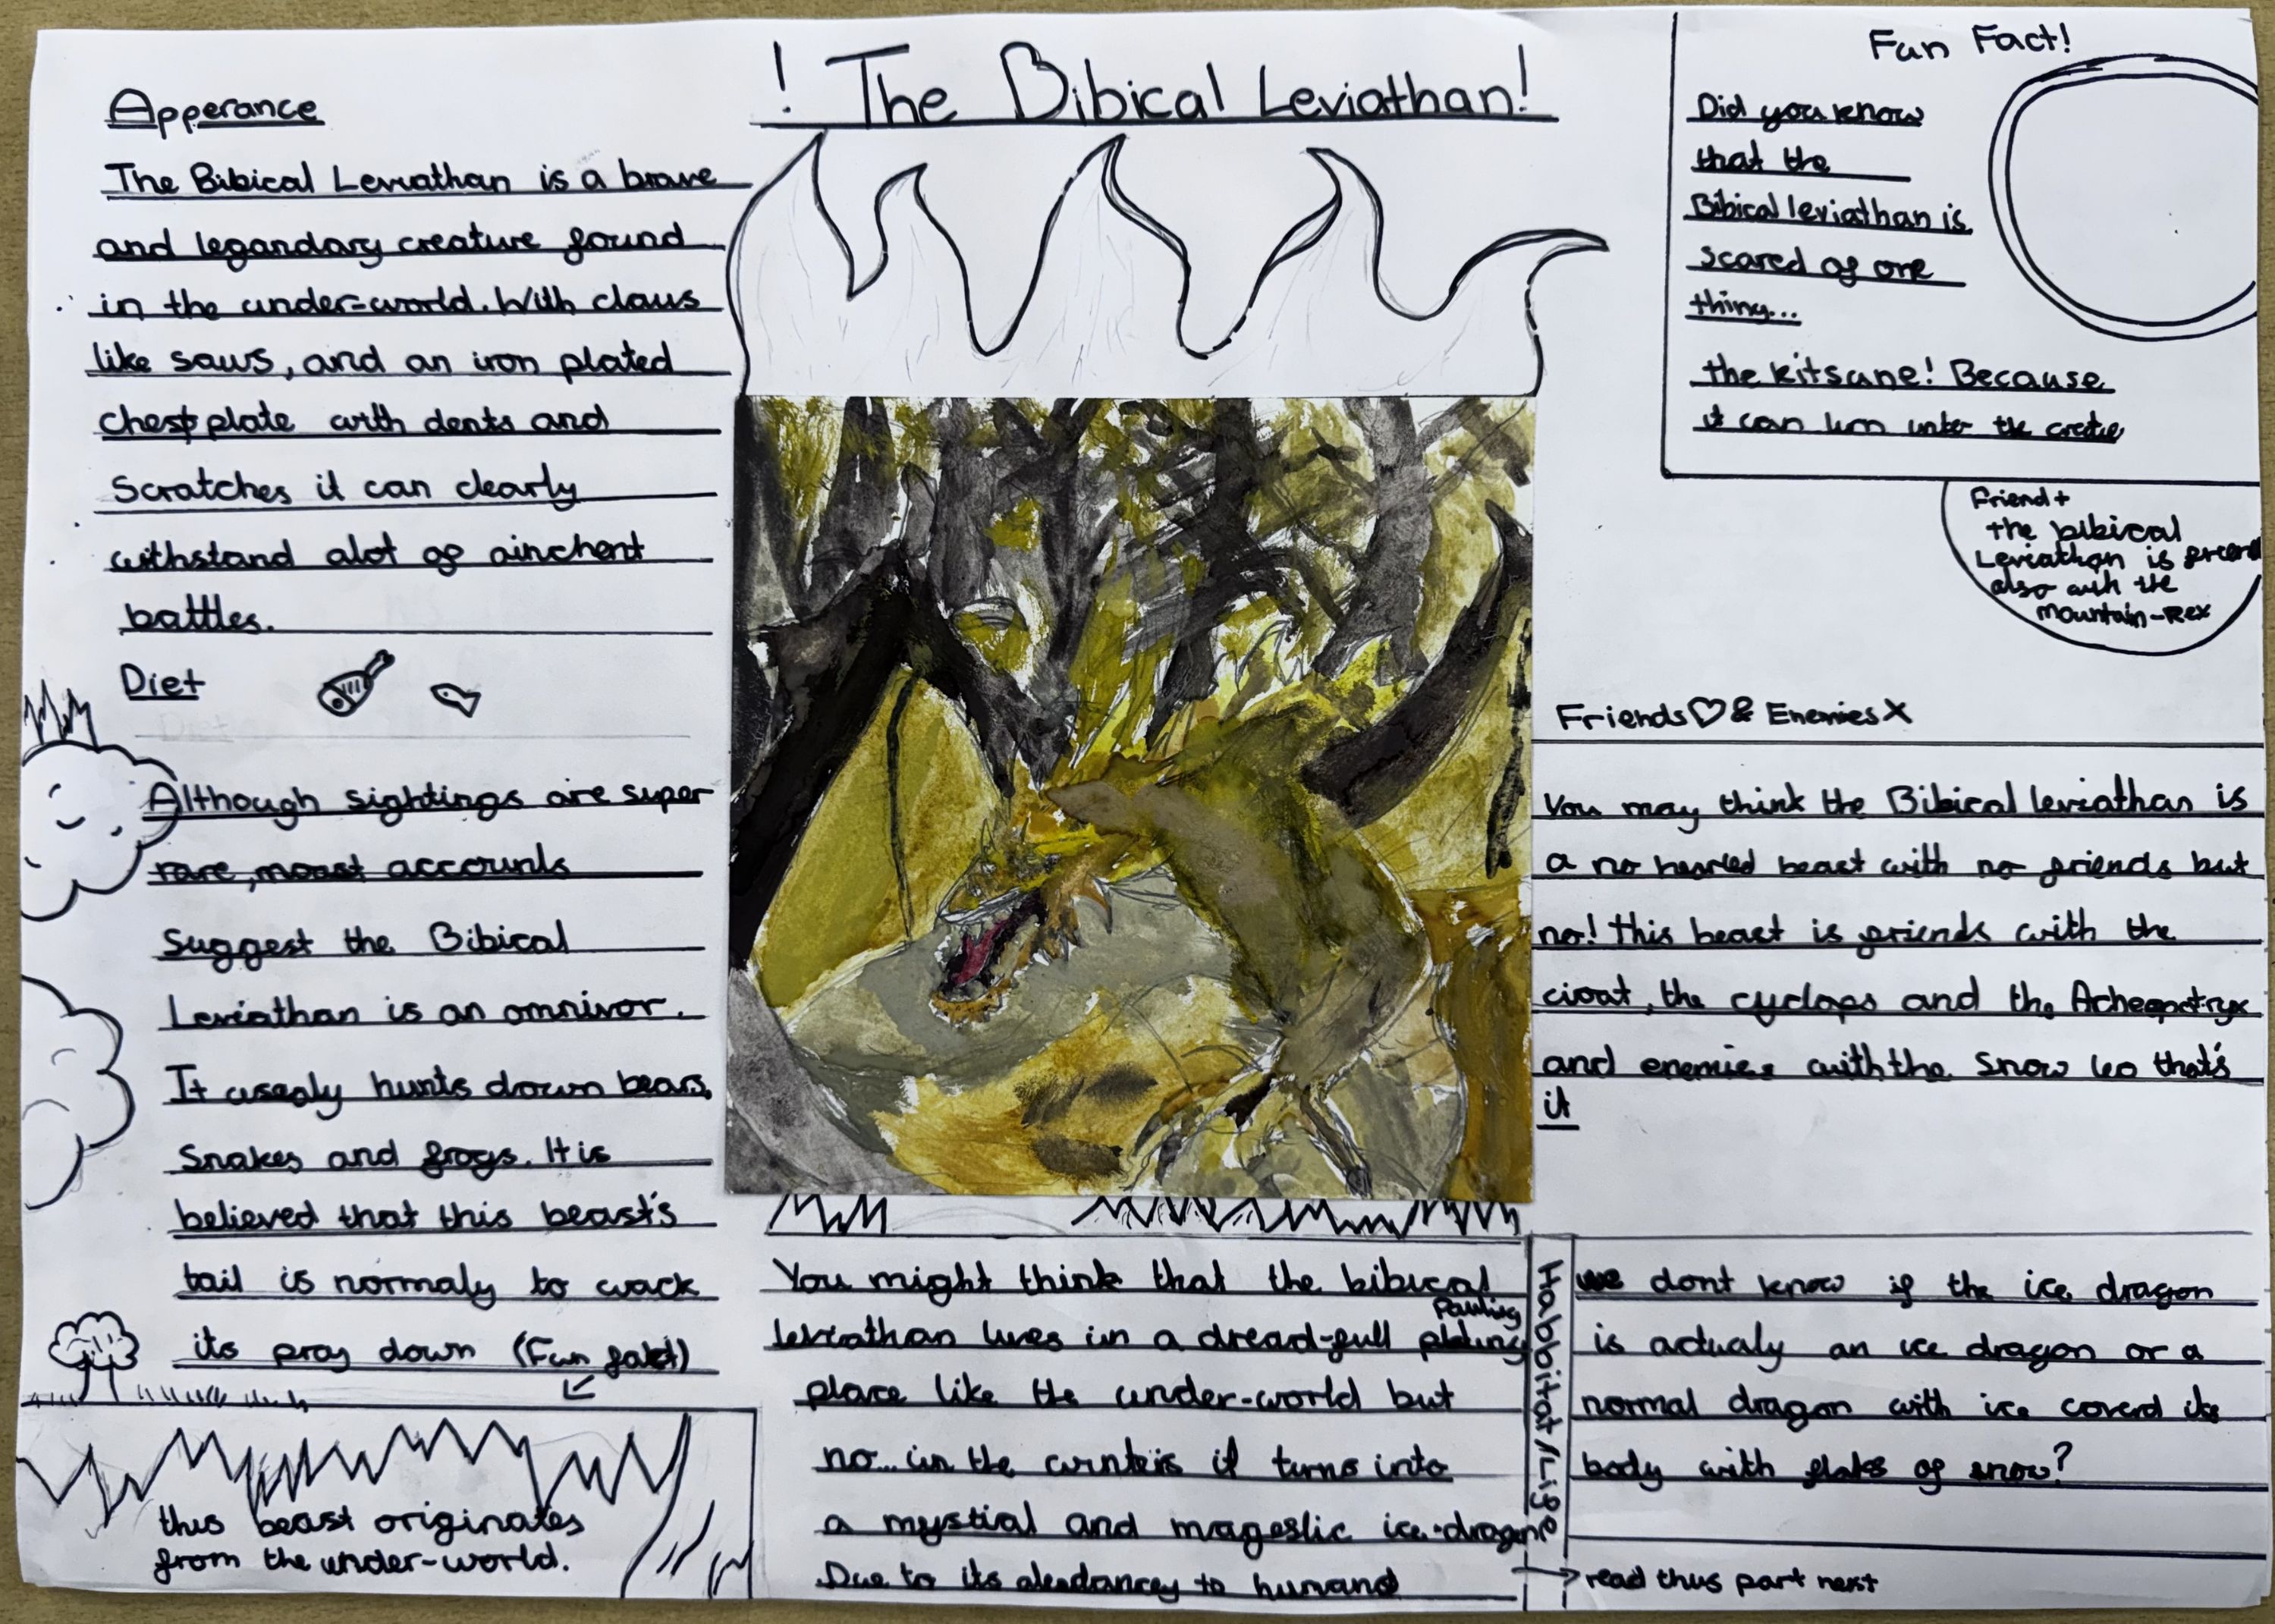 ! The Bibical Leviathan!
Apperance
The Bibical Leviathan is a brave
and legandary creature found
in the under-world. With claws
like saws, and an iron plated
chestplate with dents and
Scratches it can clearly
withstand alot of ainchent
battles.
Diet
Although sightings are super
rare, moast accounts
Suggest the Bibical
Leviathan is an omnivor.
It usealy hunts down bears,
Snakes and frogs. It is
believed that this beast's
tail is normaly to wack
its pray down (Fun fakt)
this beast originates
from the under-world.
You might think that the bibical
leviathan lives in a dread-full
place like the under-world but
no... in the winters it turns into
a mystial and magestic ice-dragon
Due to its to humans
Habbitat/Life
read this part next
we dont know if the ice dragon
is actualy an ice dragon or a
normal dragon with ice coverd its
body with flaks of snow?
Fun Fact!
Did you know
that the
Bibical leviathan is
scared of one
thing...
the kitsune! Because
it can turn the
Friend+
the bibical
Leviathan is
also with the
mountain-Rex
Friends♡ & Enemies X
You may think the Bibical leviathan is
a no hearted beast with no friends but
no! this beast is friends with the
the cyclops and the
and enemies with the Snow leo that's
it